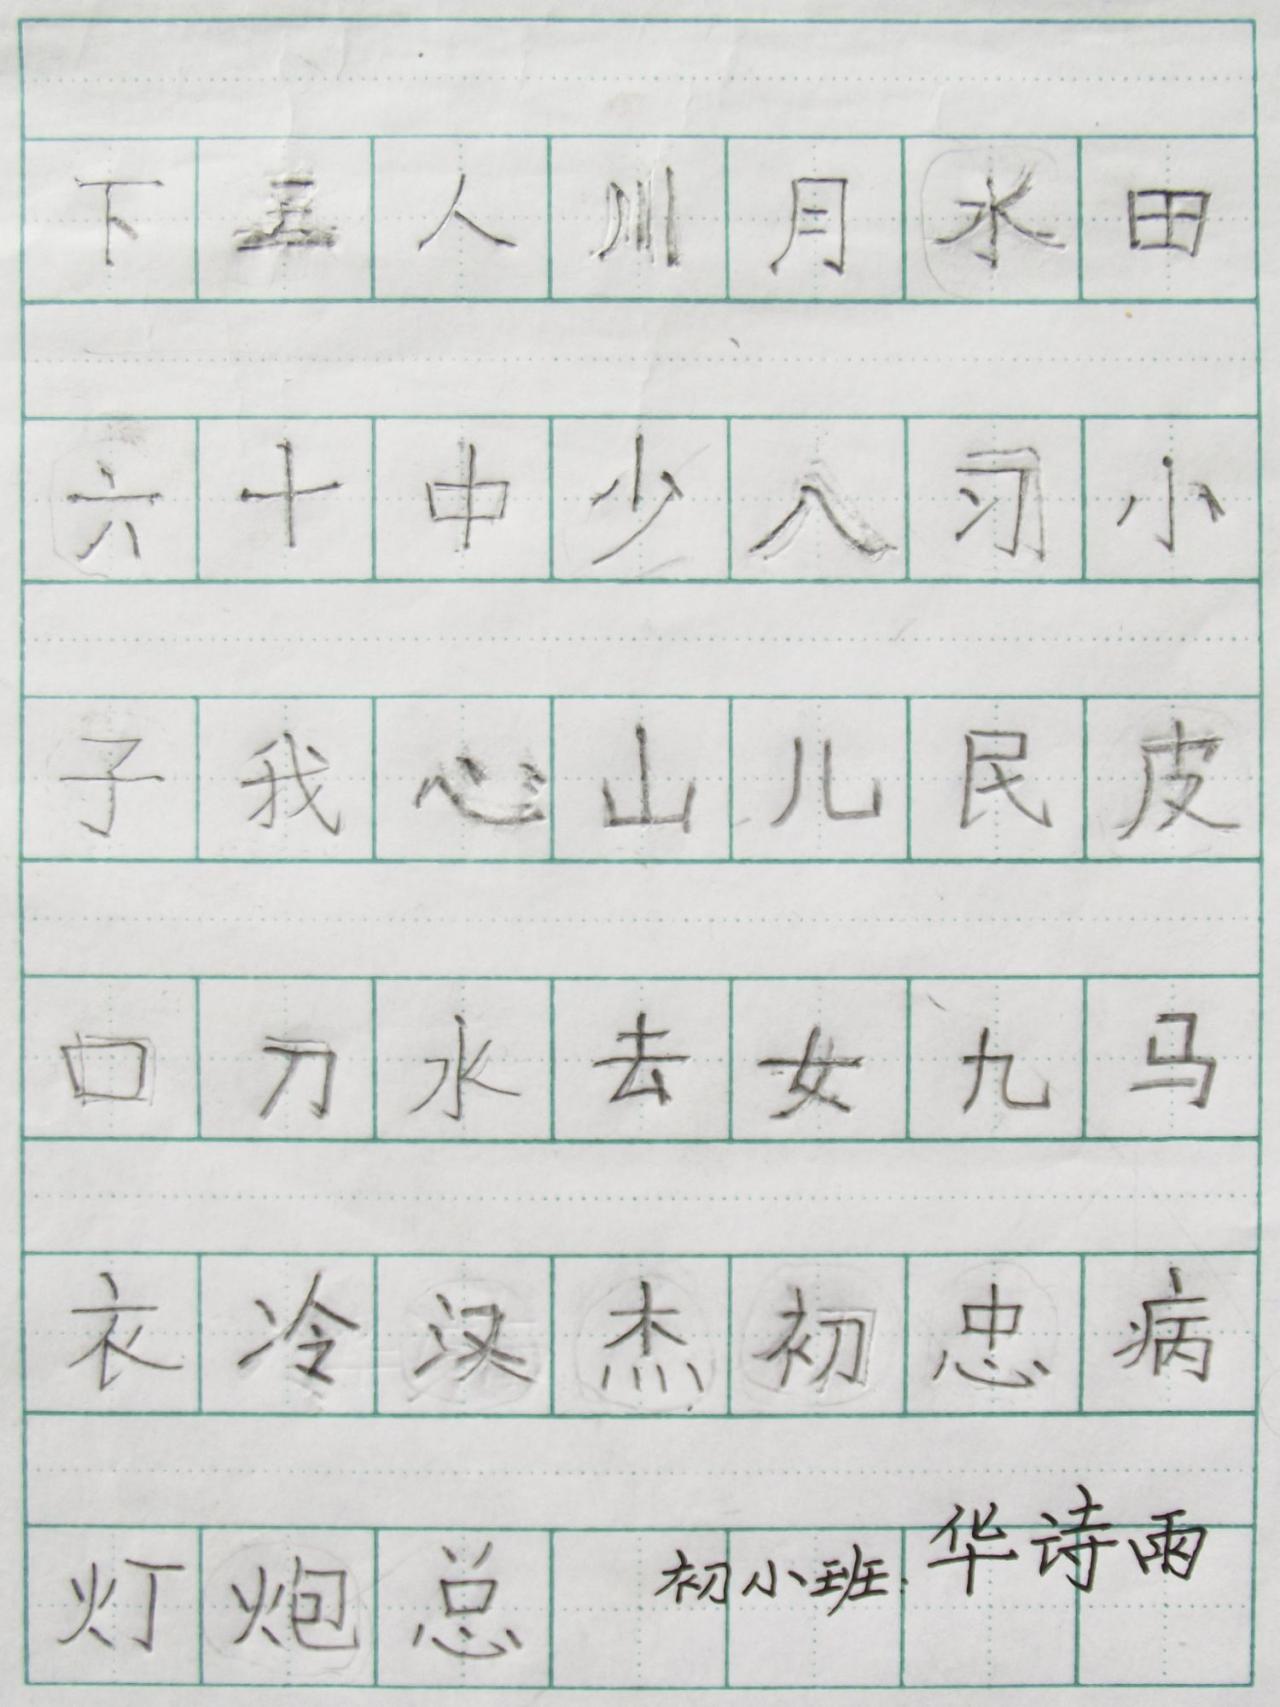 下五人川月水田
六十中少入习小
子我心山儿民皮
口刀水去女九马
衣冷汉杰初忠病
灯炮总 初小班.华诗雨